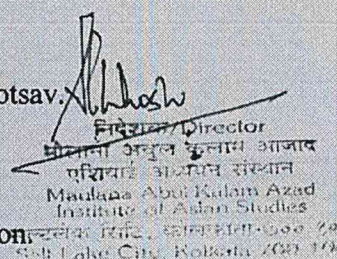 otsav.
निदेशक/Director
मौलाना अबुल कलाम आजाद
एशियाई अध्ययन संस्थान
Maulana Abul Kalam Azad
Institute of Asian Studies
on
Salt Lake City, Kolkata